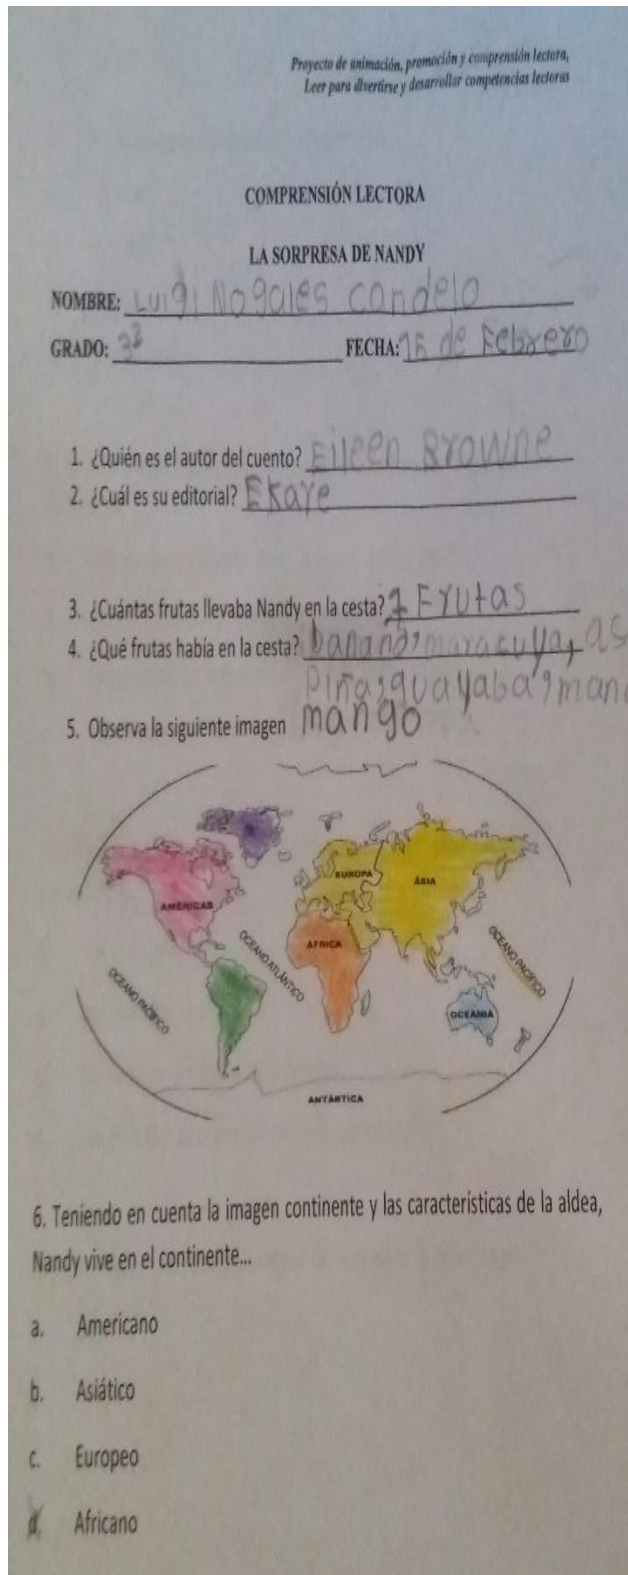 Proyecto de animación, promoción y comprensión lectora,
Leer para divertirse y desarrollar competencias lectoras
COMPRENSIÓN LECTORA
LA SORPRESA DE NANDY
NOMBRE: Luigi Nogales Candelo
GRADO: 3³ FECHA: 15 de Febrero
1. ¿Quién es el autor del cuento? Eileen Browne
2. ¿Cuál es su editorial? Ekare
3. ¿Cuántas frutas llevaba Nandy en la cesta? 7 Frutas
4. ¿Qué frutas había en la cesta? banano, maracuya,
Piña, guayaba, man
5. Observa la siguiente imagen mango
EUROPA
ÁSIA
AMÉRICAS
ÁFRICA
OCEANO ATLÁNTICO
OCEANO PACÍFICO
OCEANO PACÍFICO
OCEANIA
ANTÁRTICA
6. Teniendo en cuenta la imagen continente y las características de la aldea,
Nandy vive en el continente...
a. Americano
b. Asiático
c. Europeo
d. Africano